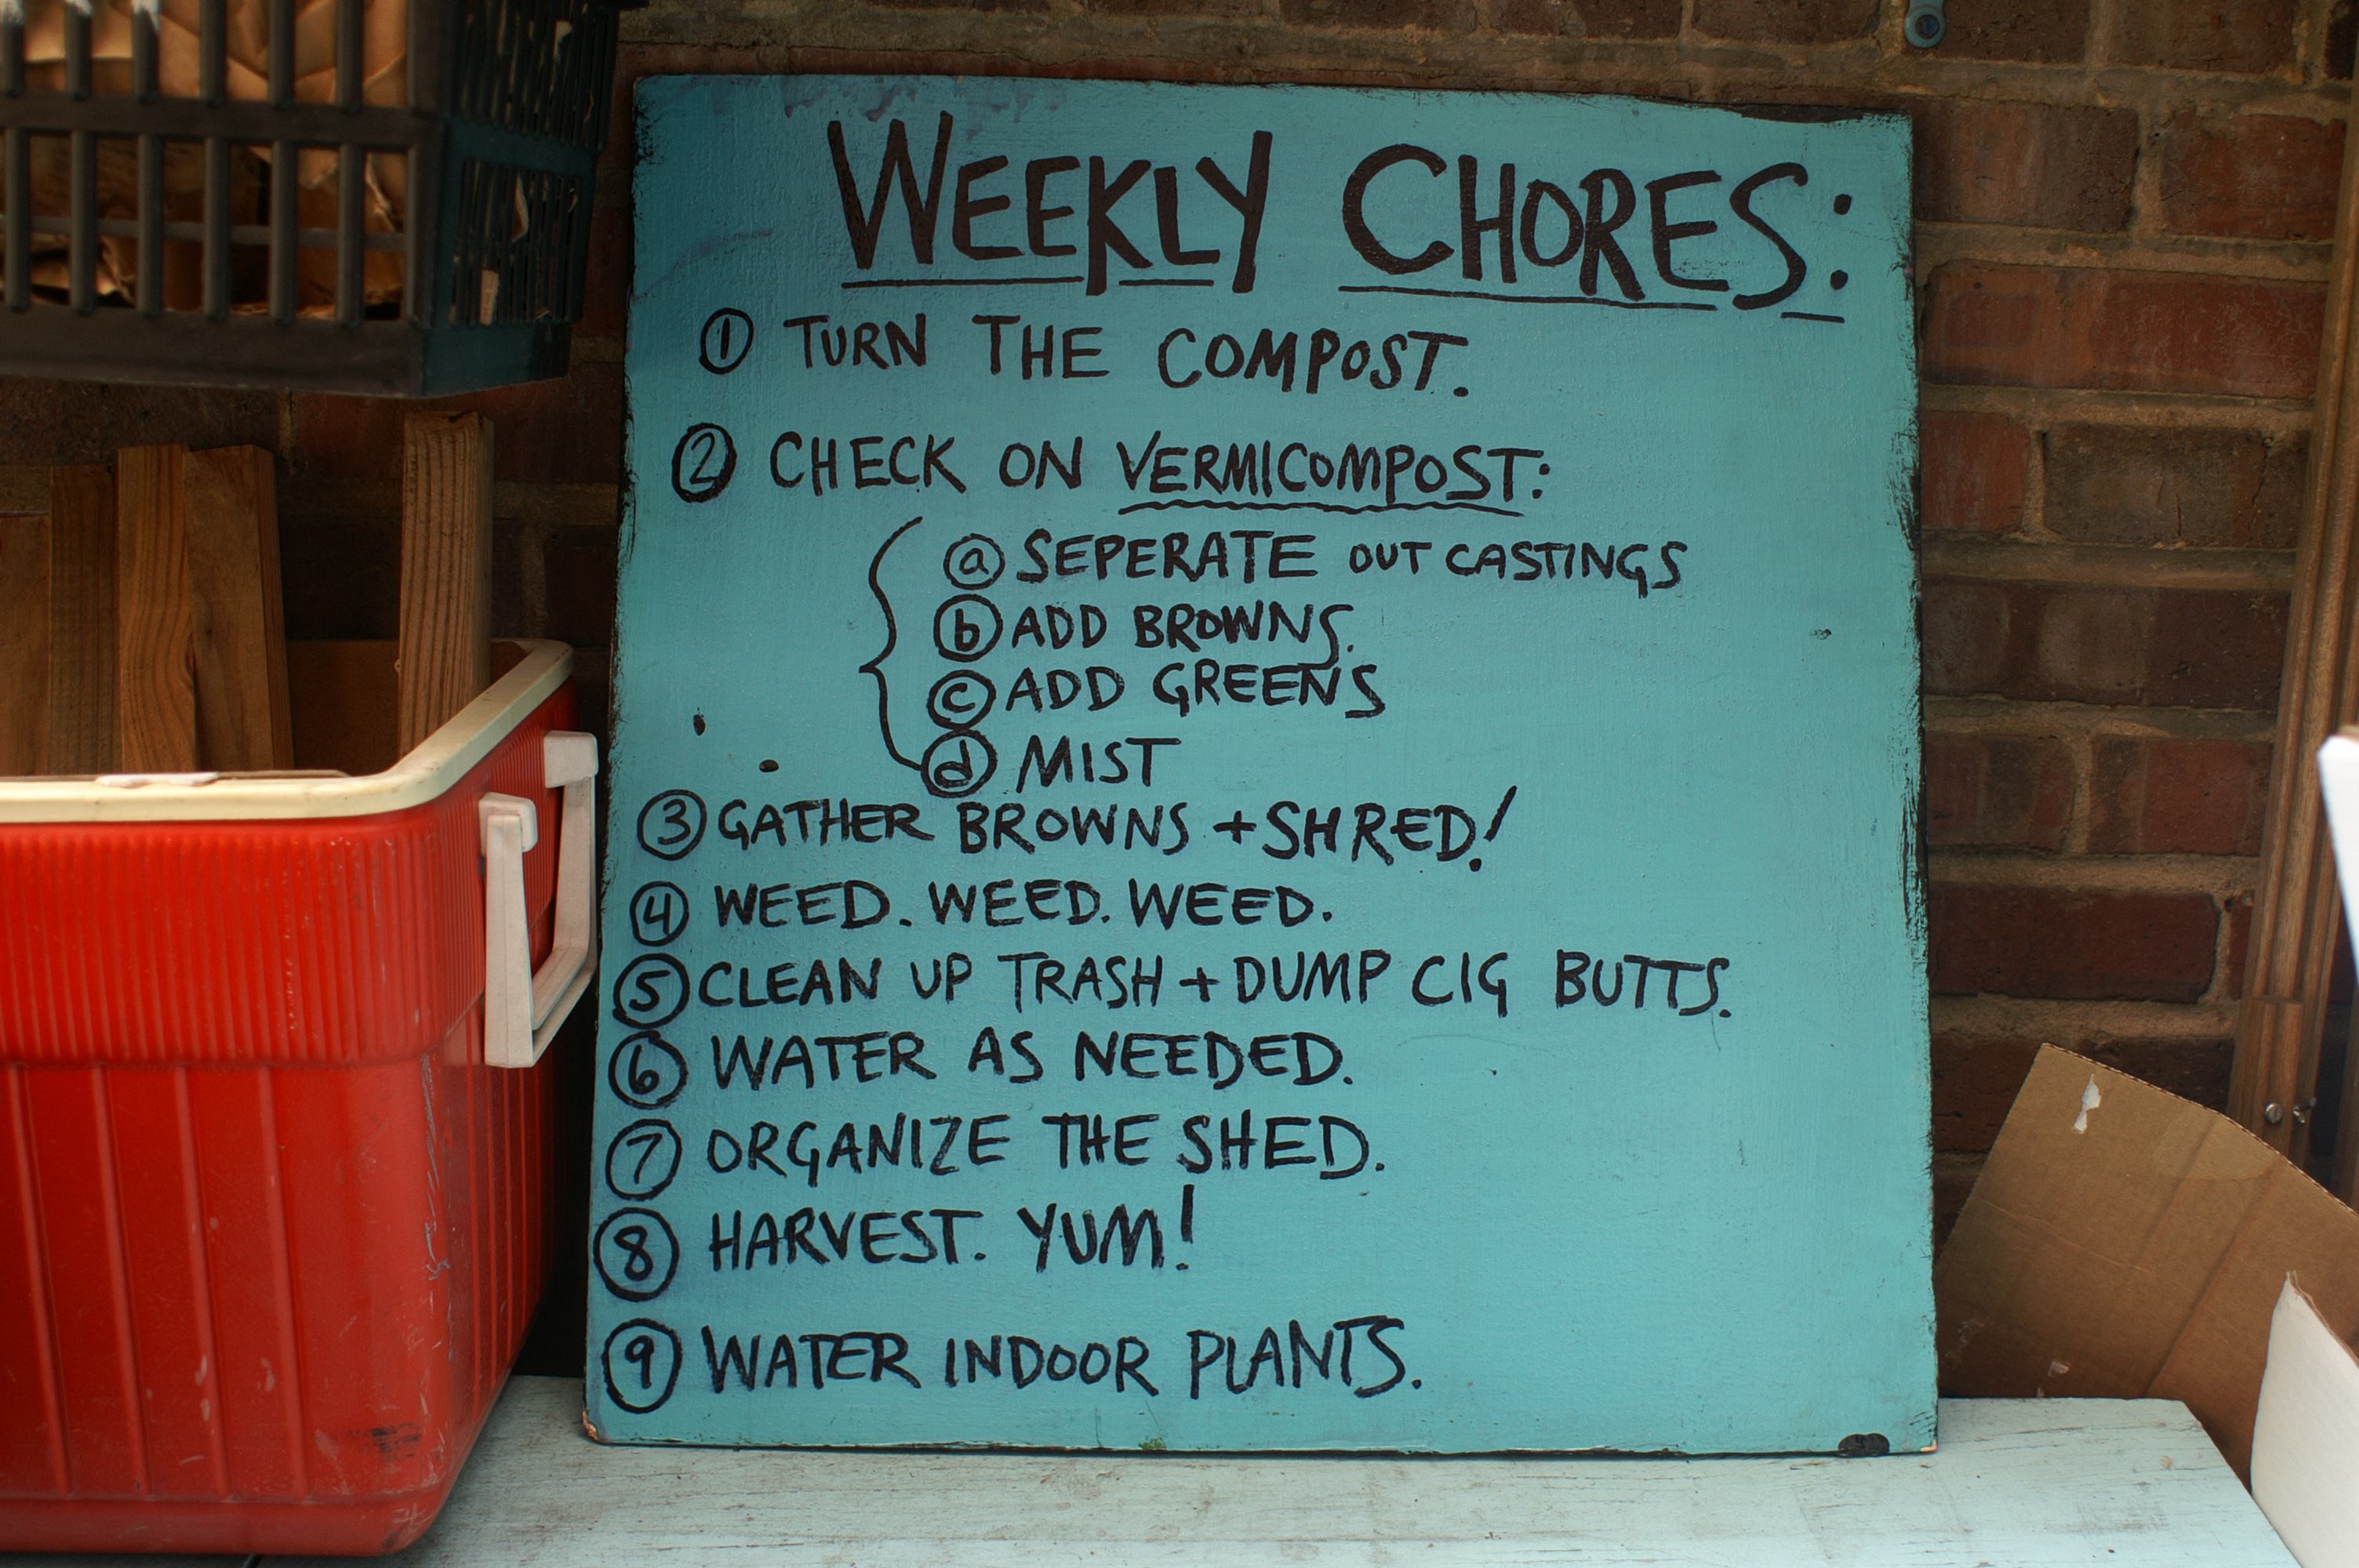 WEEKLY CHORES:
① TURN THE COMPOST.
② CHECK ON VERMICOMPOST:
ⓐ SEPERATE OUT CASTINGS
ⓑ ADD BROWNS.
ⓒ ADD GREENS
ⓓ MIST
③ GATHER BROWNS + SHRED!
④ WEED. WEED. WEED.
⑤ CLEAN UP TRASH + DUMP CIG BUTTS.
⑥ WATER AS NEEDED.
⑦ ORGANIZE THE SHED.
⑧ HARVEST. YUM!
⑨ WATER INDOOR PLANTS.